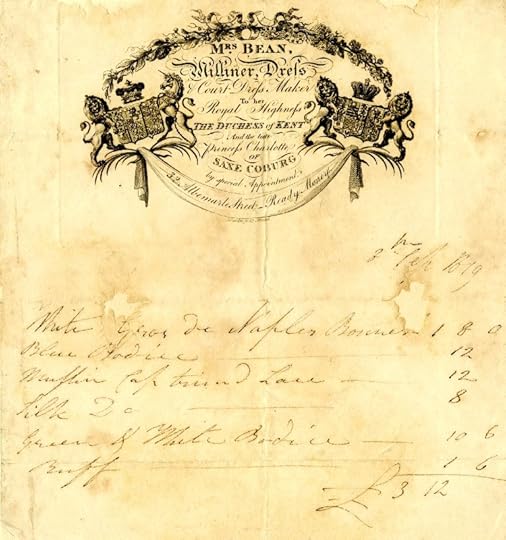 MRS BEAN,
Milliner, Dreſs
& Court Dreſs Maker
To her
Royal Highneſs
THE DUCHESS of KENT
And the late
Princeſs Charlotte
OF
SAXE COBURG
by special Appointment.
32 Albemarle Street _ Ready Money
Feb 1819
White Gros de Naples Bonnet 1 8 0
Blue Bodice 12
Muslin Cap trimd Lace 12
Silk Do 8
Green & White Bodice 10 6
Buff 1 6
£ 3 12